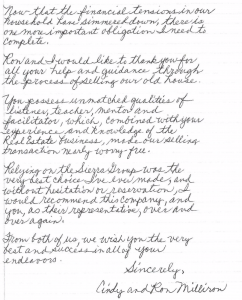 Now that the financial tensions in our
household has simmered down, there is
one more important obligation I need to
complete.
Ron and I would like to thank you for
all your help and guidance through
the process of selling our old house.
You possess unmatched qualities of
listener, teacher, mentor and
facilitator, which, combined with your
experience and knowledge of the
Real Estate business, made our selling
transaction nearly worry-free.
Relying on the Sierra Group was the
very best choice I've ever made, and
without hesitation or reservation, I
would recommend this company, and
you, as their representative, over and
over again.
From both of us, we wish you the very
best and success in all of your
endeavors.
Sincerely,
Cindy and Ron Milliron